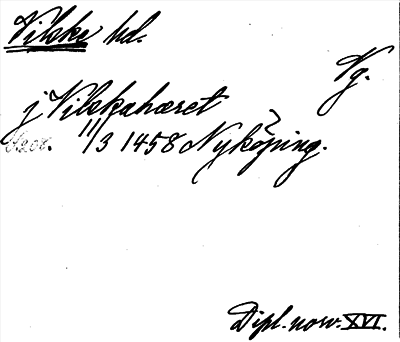 Vilske hd.
Vg.
j Vilskahæret
11/3 1458 Nyköping.
Dipl. norv. XVI.